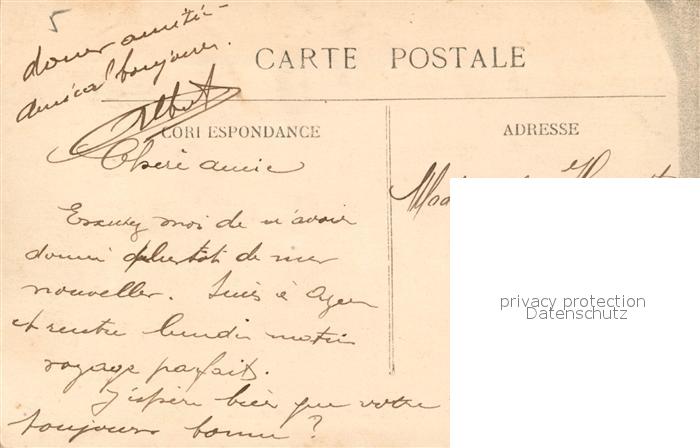 5
douce amitié
amical bonjour.
Albert
CARTE POSTALE
CORRESPONDANCE
ADRESSE
Chère amie
Excusez moi de n'avoir
donné plutot de mes
nouvelles. Suis à Agen
et rentre lundi matin
voyage parfait.
J'espère bien que votre
toujours bonne ?
privacy protection
Datenschutz